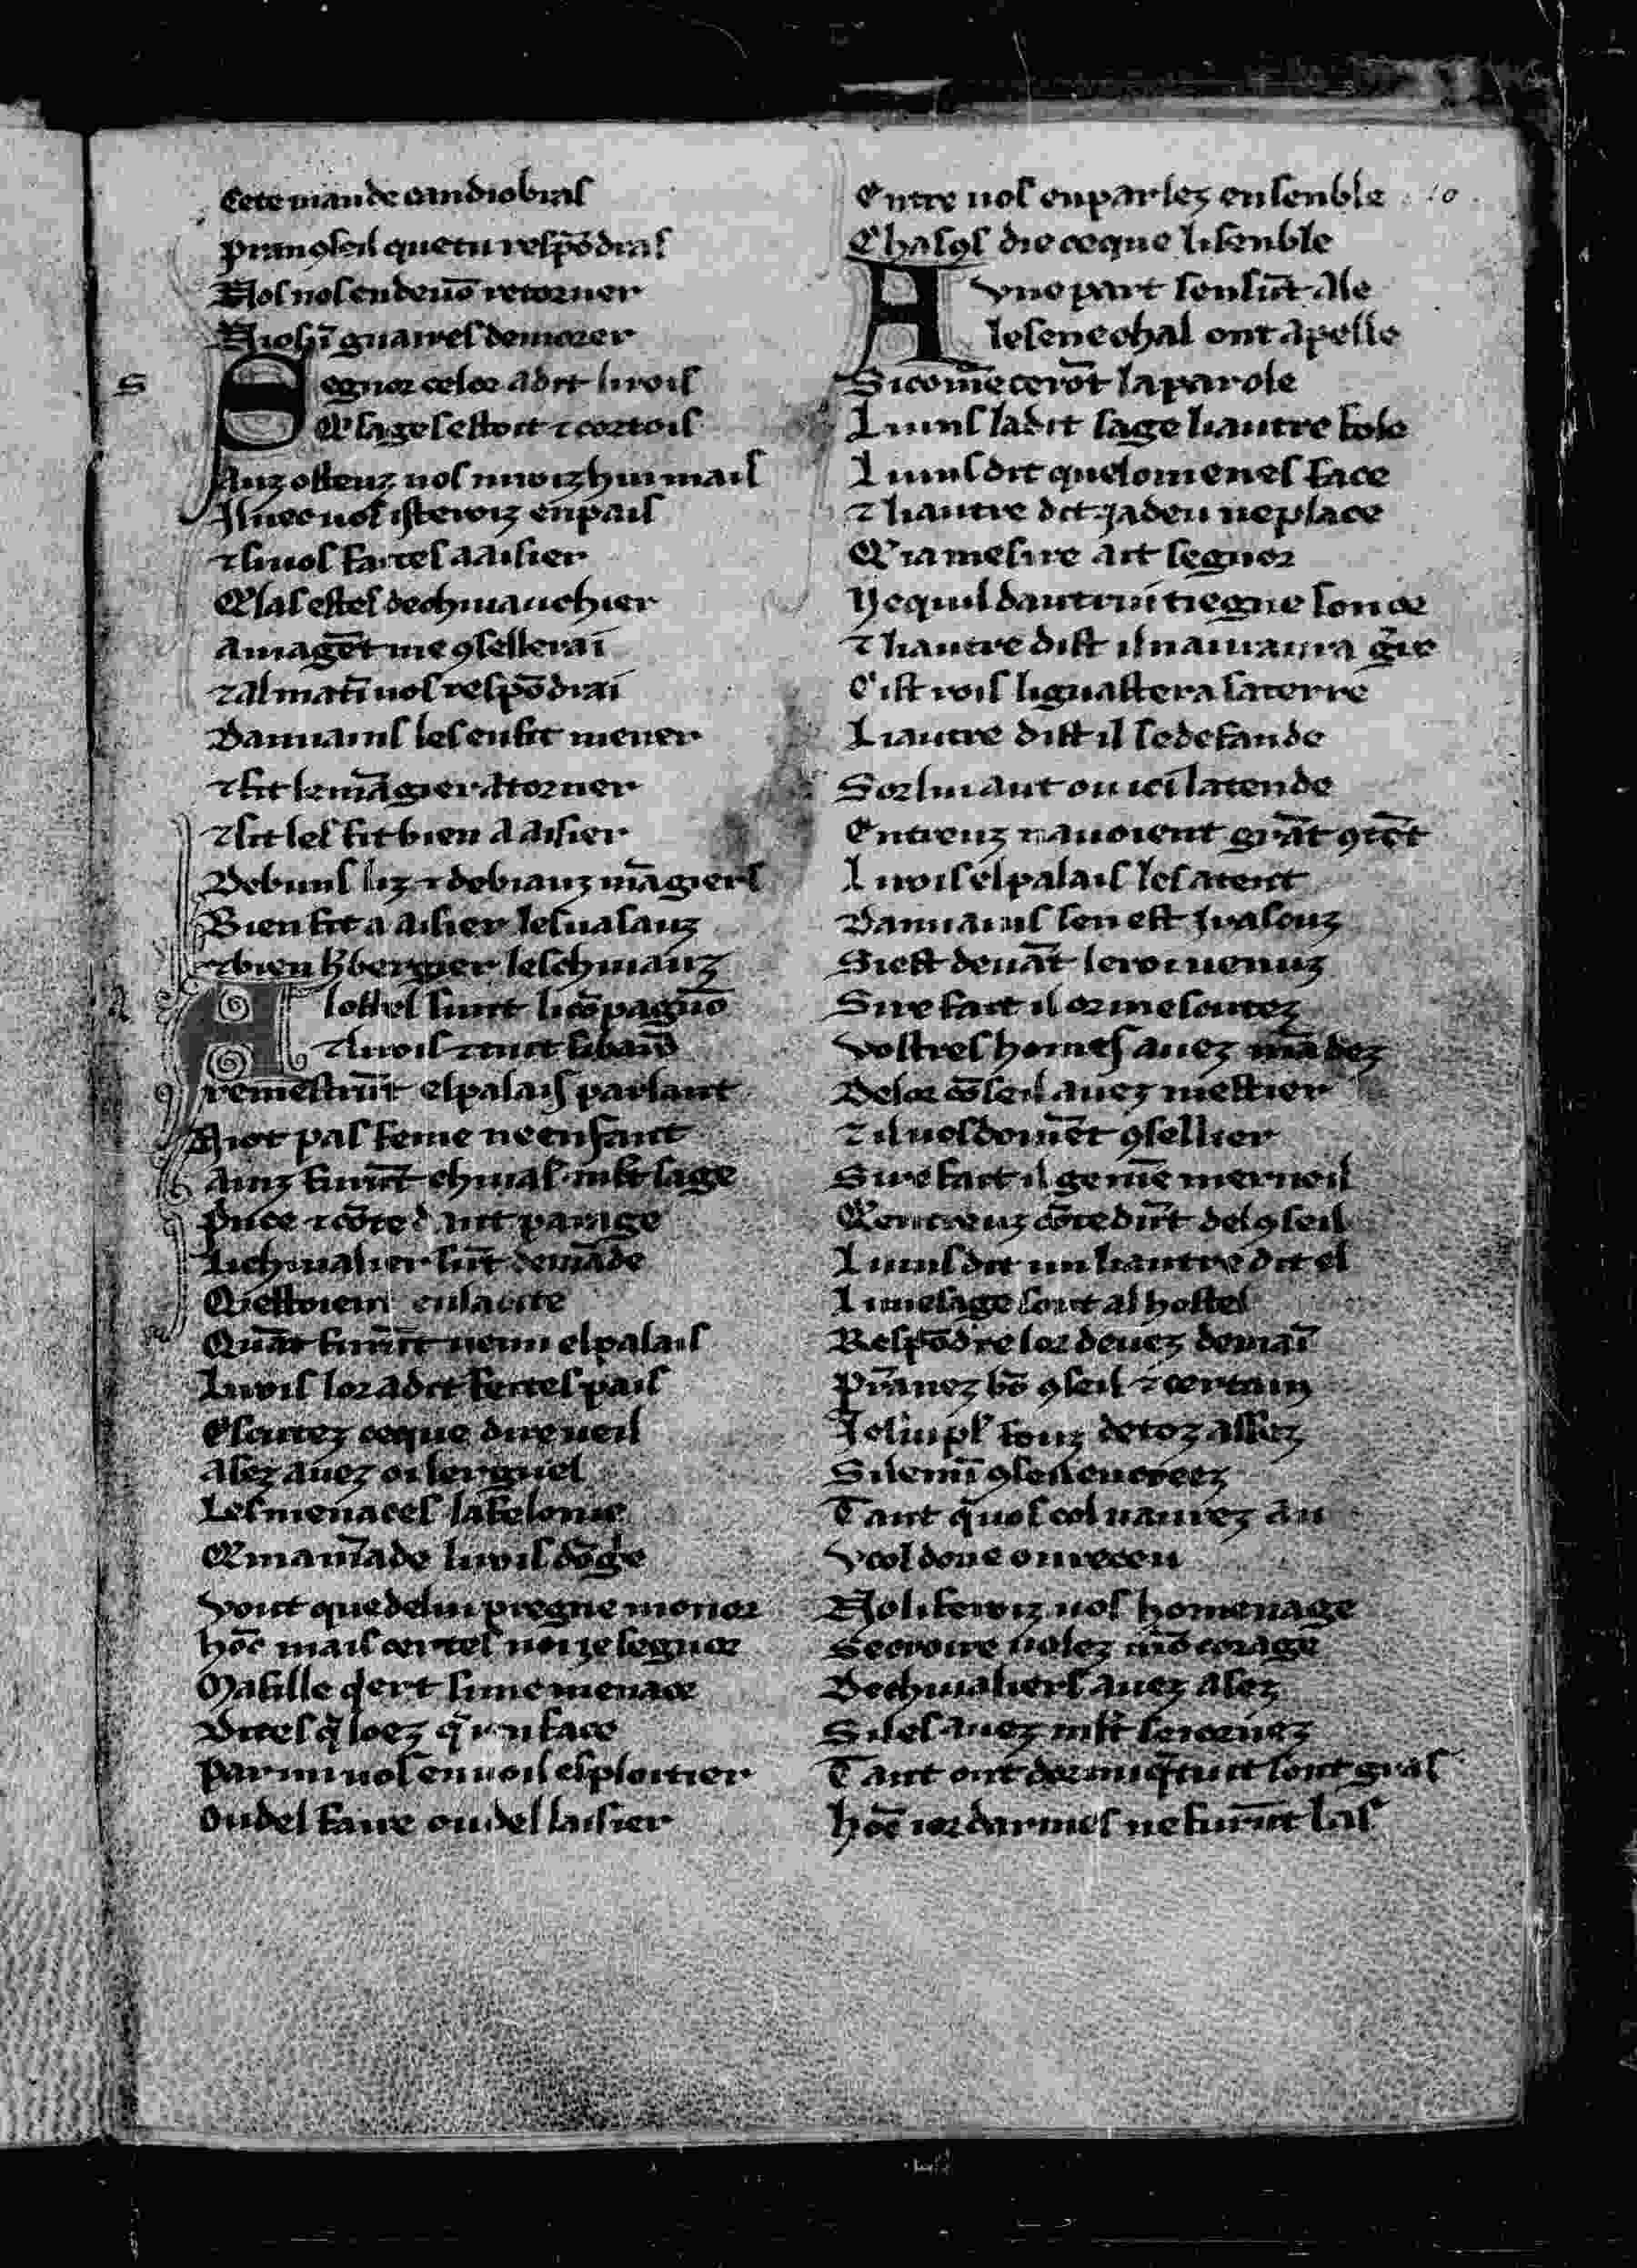 Cete mande candiobras
Pran ꝯseil que tu respōdras
Nos nos en deuō retorner
Ni osī guaires demorer
S
Segnor ce lor a dit li rois
Q̇ sages estoit ⁊ cortois
Auz osteuz uos mroiz hui mais
Iluec uos isteroiz en pais
⁊ si uos faites aaisier
Q̇ las estes de cheuauchier
A ma gēt me ꝯsellerai
⁊ al matī uos respōdrai
Dannains les en fit mener
⁊ fit le māgier atorner
⁊ sit les fit bien aaisier
De buns liz ⁊ de biauz māgiers
Bien fit aaisier les uasauz
⁊ bien h̄bergier les cheuauz
A lostel sunt li cōpagnō
⁊ li rois ⁊ tuit si barō
remestrūt el palais parlant
Niot pas feme ne enfant
Ainz furūt cheual mlt sage
Prīce ⁊ cōte d hit parage
Li cheualier sūt demāde
Qi estoient en la cite
Quāt furūt uenu el palais
Li rois lor a dit fetes pais
Escutez ce que dire ueil
Asez auez oi lerguel
Les menaces la felonie
Q̇ mamāde li rois dōgie
Vout que de lui pregne monor
hōc mais certes noi ie segnor
Ma fille q̇ert si me menace
Dites q̄ loez q̄ ien face
Par mi uos en uoil esploitier
Ou del faire ou del laisier
Entre uos en parlez ensenble 10
Chascꝰ die ce que li senble
A vne part sen sūt ale
le senechal ont apelle
Si comēcerōt la parole
Li uns la dit sage li autre fole
Li uns dit que lomenes face
⁊ li autre dit ia deu ne place
Q̇ ia mesire ait segnor
Ne quil dautrui tiegne sonor
⁊ li autre dist il naura ia ḡre
Cist rois li guastera sa terre
Li autre dist il se defande
Sor lui aut ou ici latende
Entreuz nauoient grāt ꝯtēt
Li rois el palais les atent
Dannains sen est leuasouz
Si est deuāt le roi uenuz
Sire fait il or me scutez
Vostres homes auez mādez
De lor cōseil auez mestier
⁊ il uos doiuēt ꝯsellier
Sire fait il ge mē merueil
Q̇ entreuz cōtedirt del ꝯseil
Li uns dit un li autre dit el
Li mesage sont al hostel
Respōdre lor deuez demaī
Prānez bō ꝯseil ⁊ certain
Ie sui pl' fouz de toz assez
Si le mī ꝯseil en creez
Tant q̄ uos col naurez au
Vcol done on receu
Noli feroiz uos homenage
Se croire uolez mō corage
De cheualiers auez asez
Si les auez mlt seiornez
Tant ont dormi q̄ tuit sont gras
hōc ior darmes ne furūt las